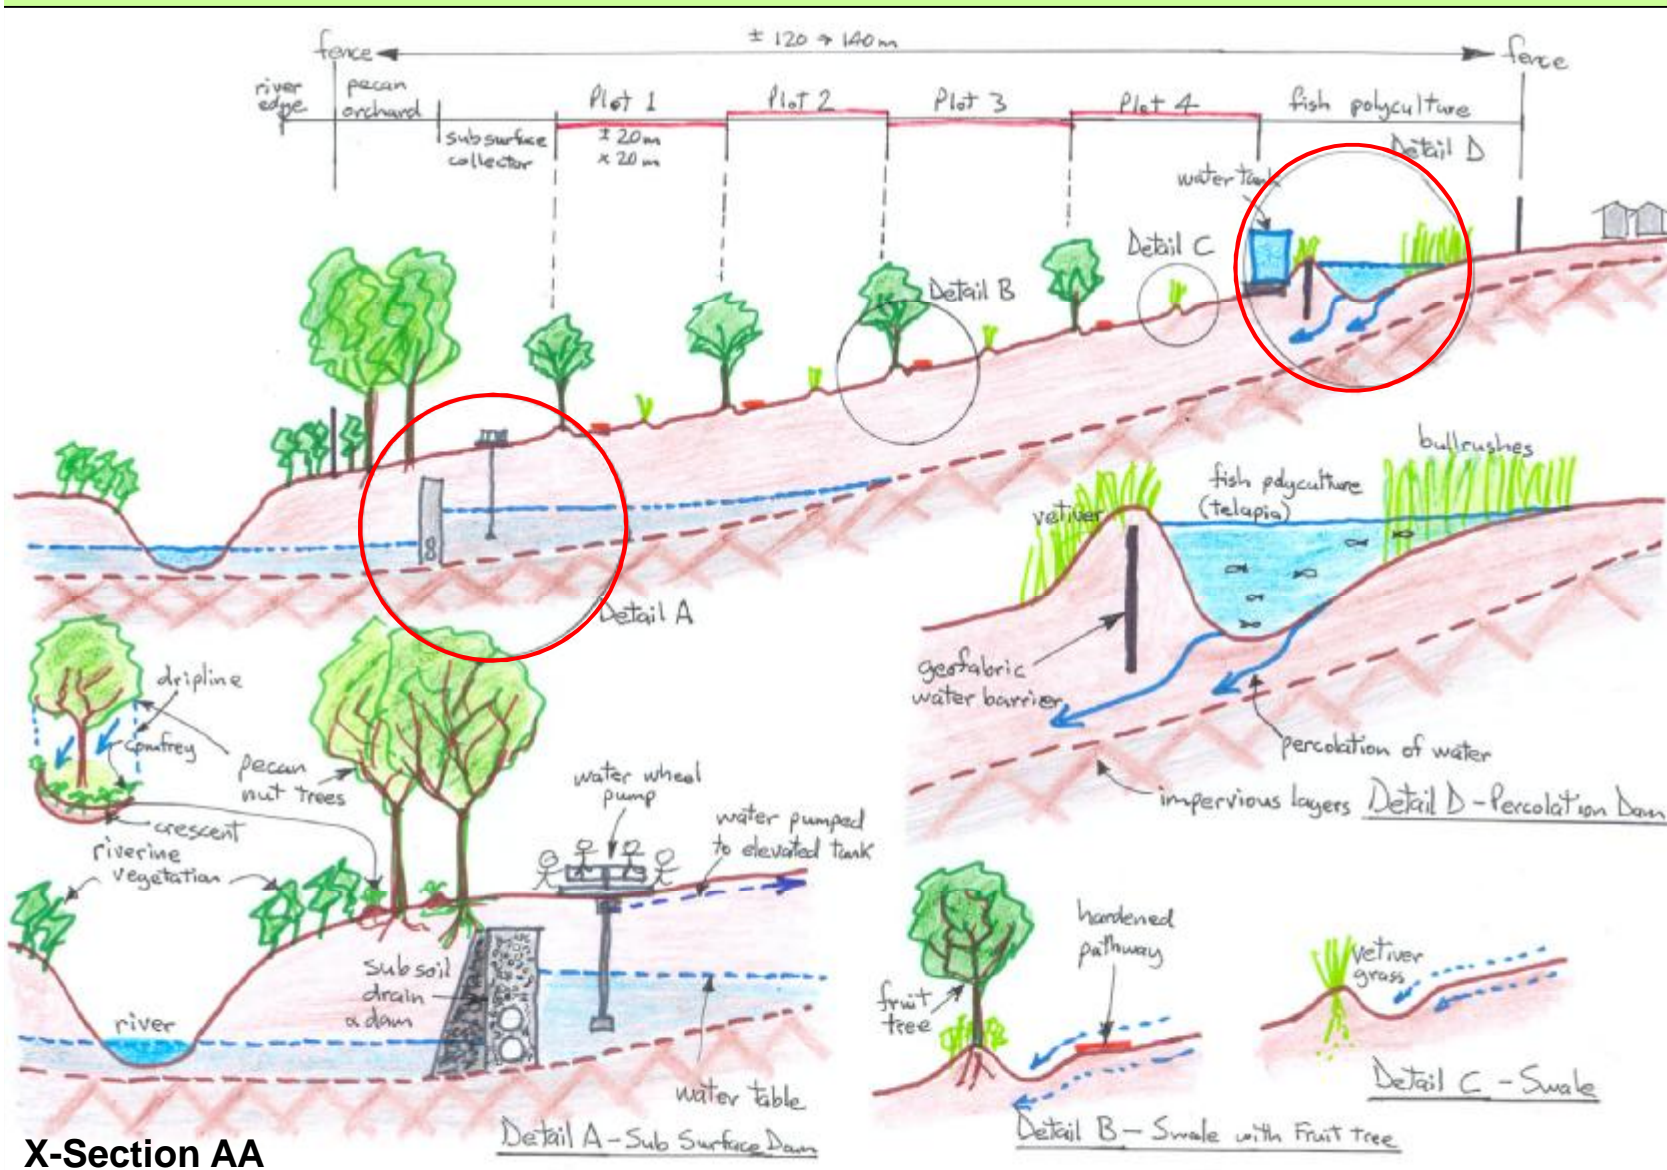 fence
± 120 → 140m
fence
river
edge
pecan
orchard
Plot 1
Plot 2
Plot 3
Plot 4
fish polyculture
subsurface
collector
± 20m
x 20m
Detail D
water tank
Detail C
Detail B
Detail A
bullrushes
fish polyculture
(telapia)
vetiver
geofabric
water barrier
percolation of water
impervious layers
Detail D - Percolation Dam
dripline
comfrey
pecan
nut trees
crescent
riverine
vegetation
water wheel
pump
water pumped
to elevated tank
subsoil
drain
& dam
river
water table
Detail A - Sub Surface Dam
hardened
pathway
fruit
tree
Detail B - Swale with Fruit Tree
vetiver
grass
Detail C - Swale
X-Section AA